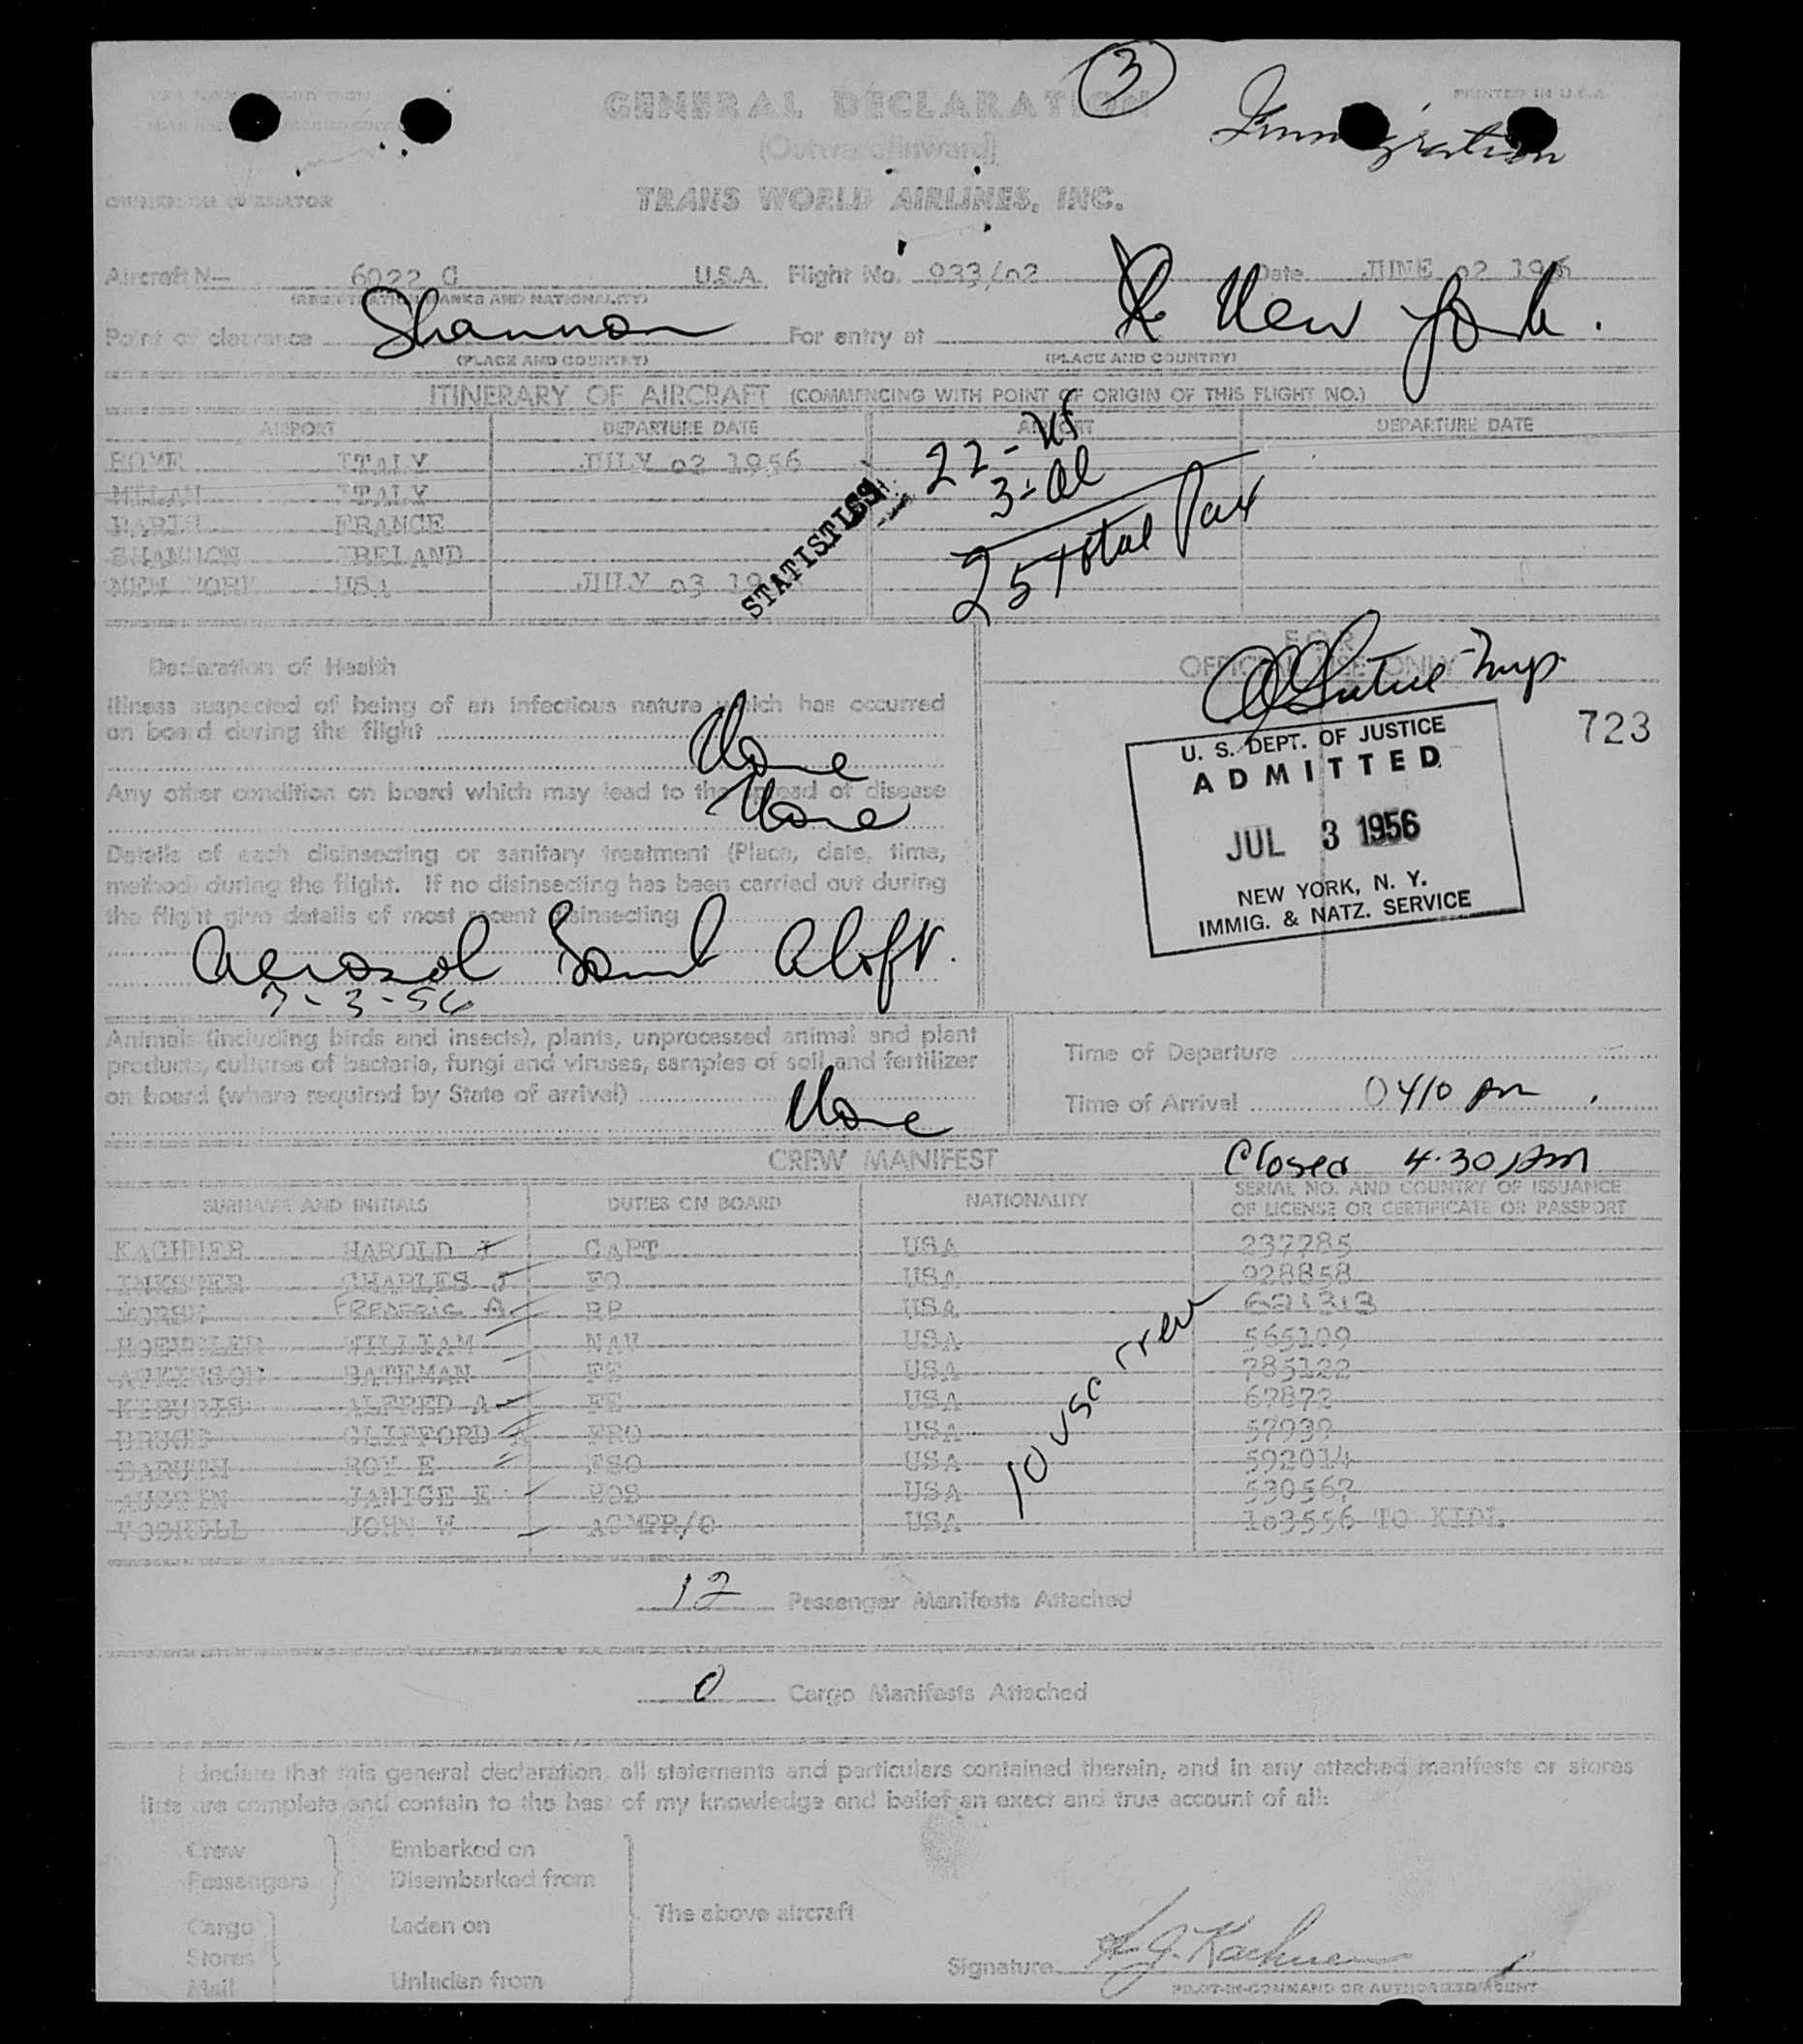 3
Immigration
PRINTED IN U.S.A.
GENERAL DECLARATION
(Outward/Inward)
OWNER OR OPERATOR
TRANS WORLD AIRLINES, INC.
Aircraft N— 6022 C U.S.A. Flight No. 933/02 Date JUNE 02 1956
(REGISTRATION MARKS AND NATIONALITY)
Point of clearance Shannon For entry at New York.
(PLACE AND COUNTRY) (PLACE AND COUNTRY)
ITINERARY OF AIRCRAFT (COMMENCING WITH POINT OF ORIGIN OF THIS FLIGHT NO.)
AIRPORT DEPARTURE DATE AIRPORT DEPARTURE DATE
ROME ITALY JULY 02 1956
MILAN ITALY
PARIS FRANCE
SHANNON IRELAND
NEW YORK USA JULY 03 19
STATISTICS
22 -
3 - al
25 total Pax
Declaration of Health
FOR
OFFICIAL USE ONLY
Illness suspected of being of an infectious nature which has occurred
on board during the flight None
Any other condition on board which may lead to the spread of disease
None
Details of each disinsecting or sanitary treatment (Place, date, time,
method) during the flight. If no disinsecting has been carried out during
the flight give details of most recent disinsecting
Aerosol Bomb Aloft.
7-3-56
723
U. S. DEPT. OF JUSTICE
ADMITTED
JUL 3 1956
NEW YORK, N. Y.
IMMIG. & NATZ. SERVICE
Animals (including birds and insects), plants, unprocessed animal and plant
products, cultures of bacteria, fungi and viruses, samples of soil and fertilizer
on board (where required by State of arrival) None
Time of Departure
Time of Arrival 0410 Am
CREW MANIFEST
Closed 4:30 AM
SURNAME AND INITIALS DUTIES ON BOARD NATIONALITY SERIAL NO. AND COUNTRY OF ISSUANCE
OF LICENSE OR CERTIFICATE OR PASSPORT
KACHNER HAROLD J CAPT USA 237785
INKSTER CHARLES J FO USA 928858
FREDERIC A RP USA 621313
WILLIAM NAV USA 565109
ATKINSON BATEMAN FE USA 785122
ALFRED A FE USA 67872
BRUCE CLIFFORD A FRO USA 57939
ROY E FSO USA 592014
AUSTIN JANICE E HOS USA 530567
JOHN W ACMPR/O USA 103556 TO KIDL
10 usc crew
12 Passenger Manifests Attached
0 Cargo Manifests Attached
I declare that this general declaration, all statements and particulars contained therein, and in any attached manifests or stores
lists are complete and contain to the best of my knowledge and belief an exact and true account of all:
Crew Embarked on
Passengers Disembarked from
The above aircraft
Cargo Laden on
Stores
Mail Unladen from
Signature H. J. Kachner
PILOT-IN-COMMAND OR AUTHORIZED AGENT